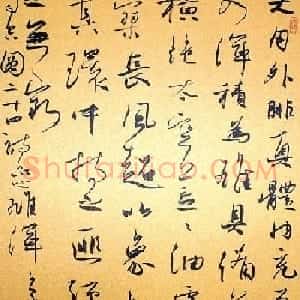 大用外腓真體內充
入渾積為雄具備
橫絕太空荒油雲
寥長風超以象
其環中持之匪強
之無窮
司空圖二十四詩品雄渾